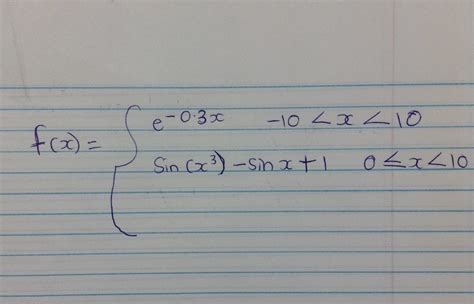 f(x) = { e^-0.3x -10 < x < 10
Sin (x³) - sin x + 1 0 ≤ x < 10